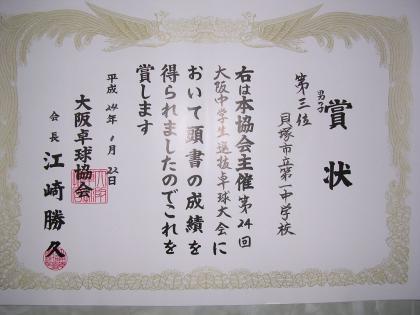 賞状
男子
第三位
貝塚市立第一中学校
右は本協会主催第24回
大阪中学生選抜卓球大会に
おいて頭書の成績を
得られましたのでこれを
賞します
平成24年1月22日
大阪卓球協会
会長 江崎勝久